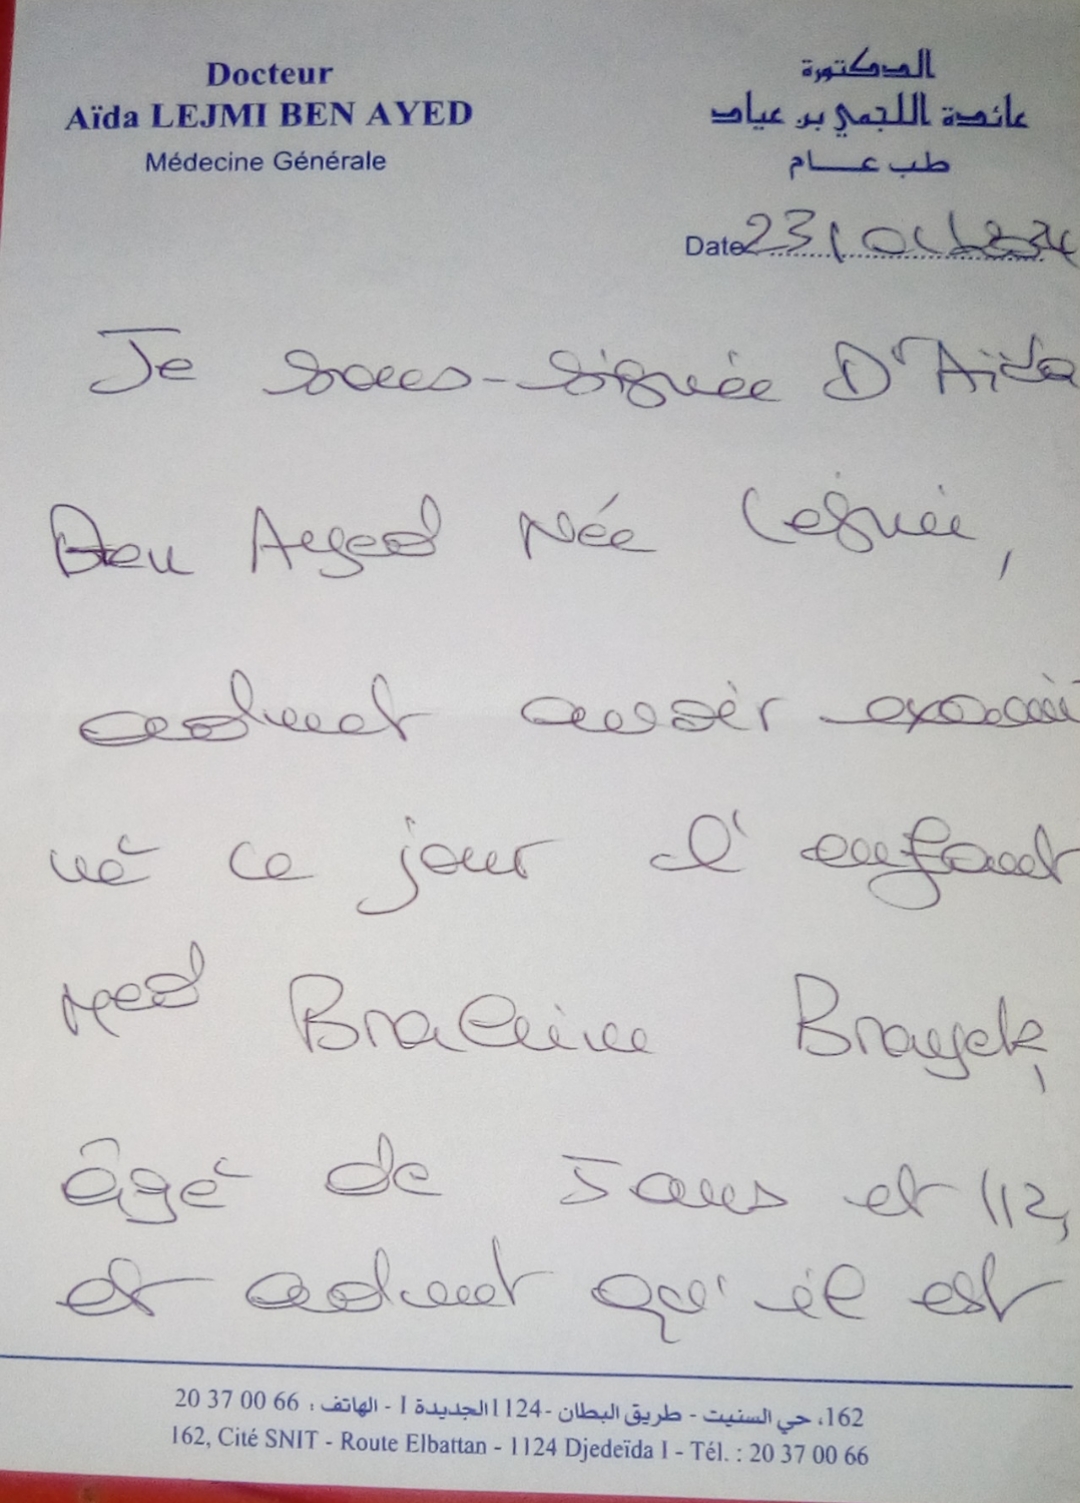 Docteur
Aïda LEJMI BEN AYED
Médecine Générale
الدكتورة
عائدة اللجمي بن عياد
طب عــــام
Date 23/
Je sous-signée Dr Aïda
Ben Ayed Née Lejmi,
avoir examiné
né ce jour l'enfant
Med Brahim Brayek,
âgé de 5 ans et 1/2,
et qu'il est
162، حي السنيت - طريق البطان -1124 الجديدة I - الهاتف : 66 00 37 20
162, Cité SNIT - Route Elbattan - 1124 Djedeïda I - Tél. : 20 37 00 66